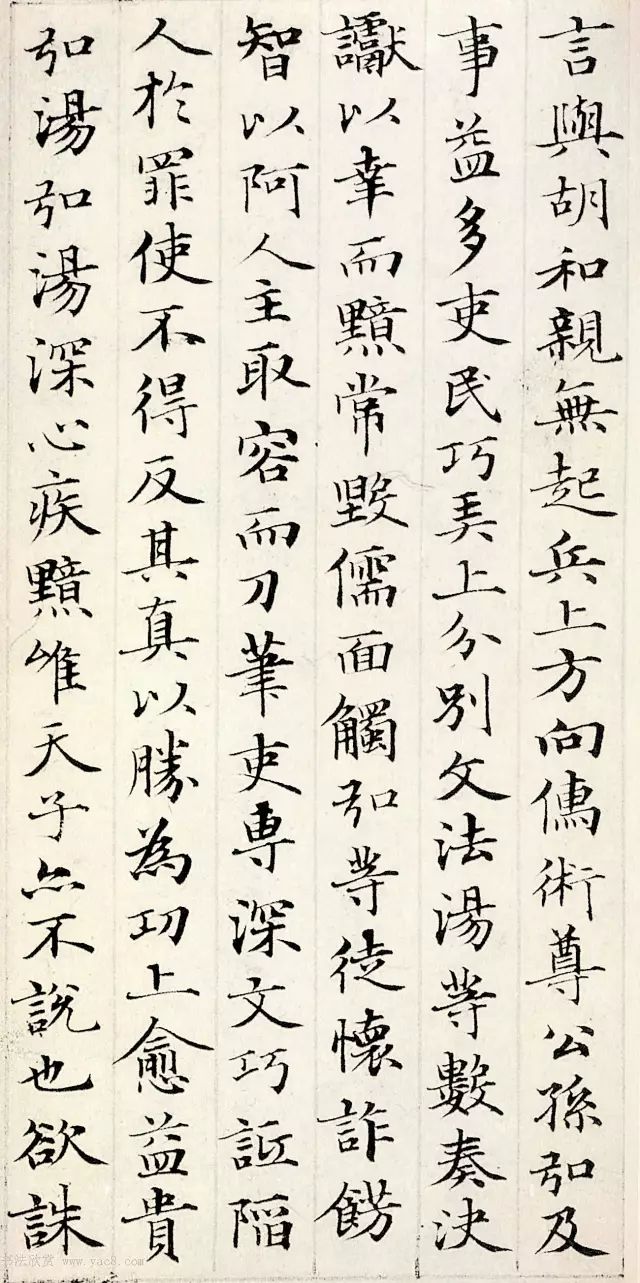 言與胡和親無起兵上方向儁術尊公孫弘及
事益多吏民巧弄上分別文法湯等數奏決
讞以幸而黯常毀儒面觸弘等徒懷詐飾
智以阿人主取容而刀筆吏專深文巧詆陷
人於罪使不得反其真以勝為功上愈益貴
弘湯弘湯深心疾黯唯天子亦不說也欲誅
书法欣赏 www.yac8.com